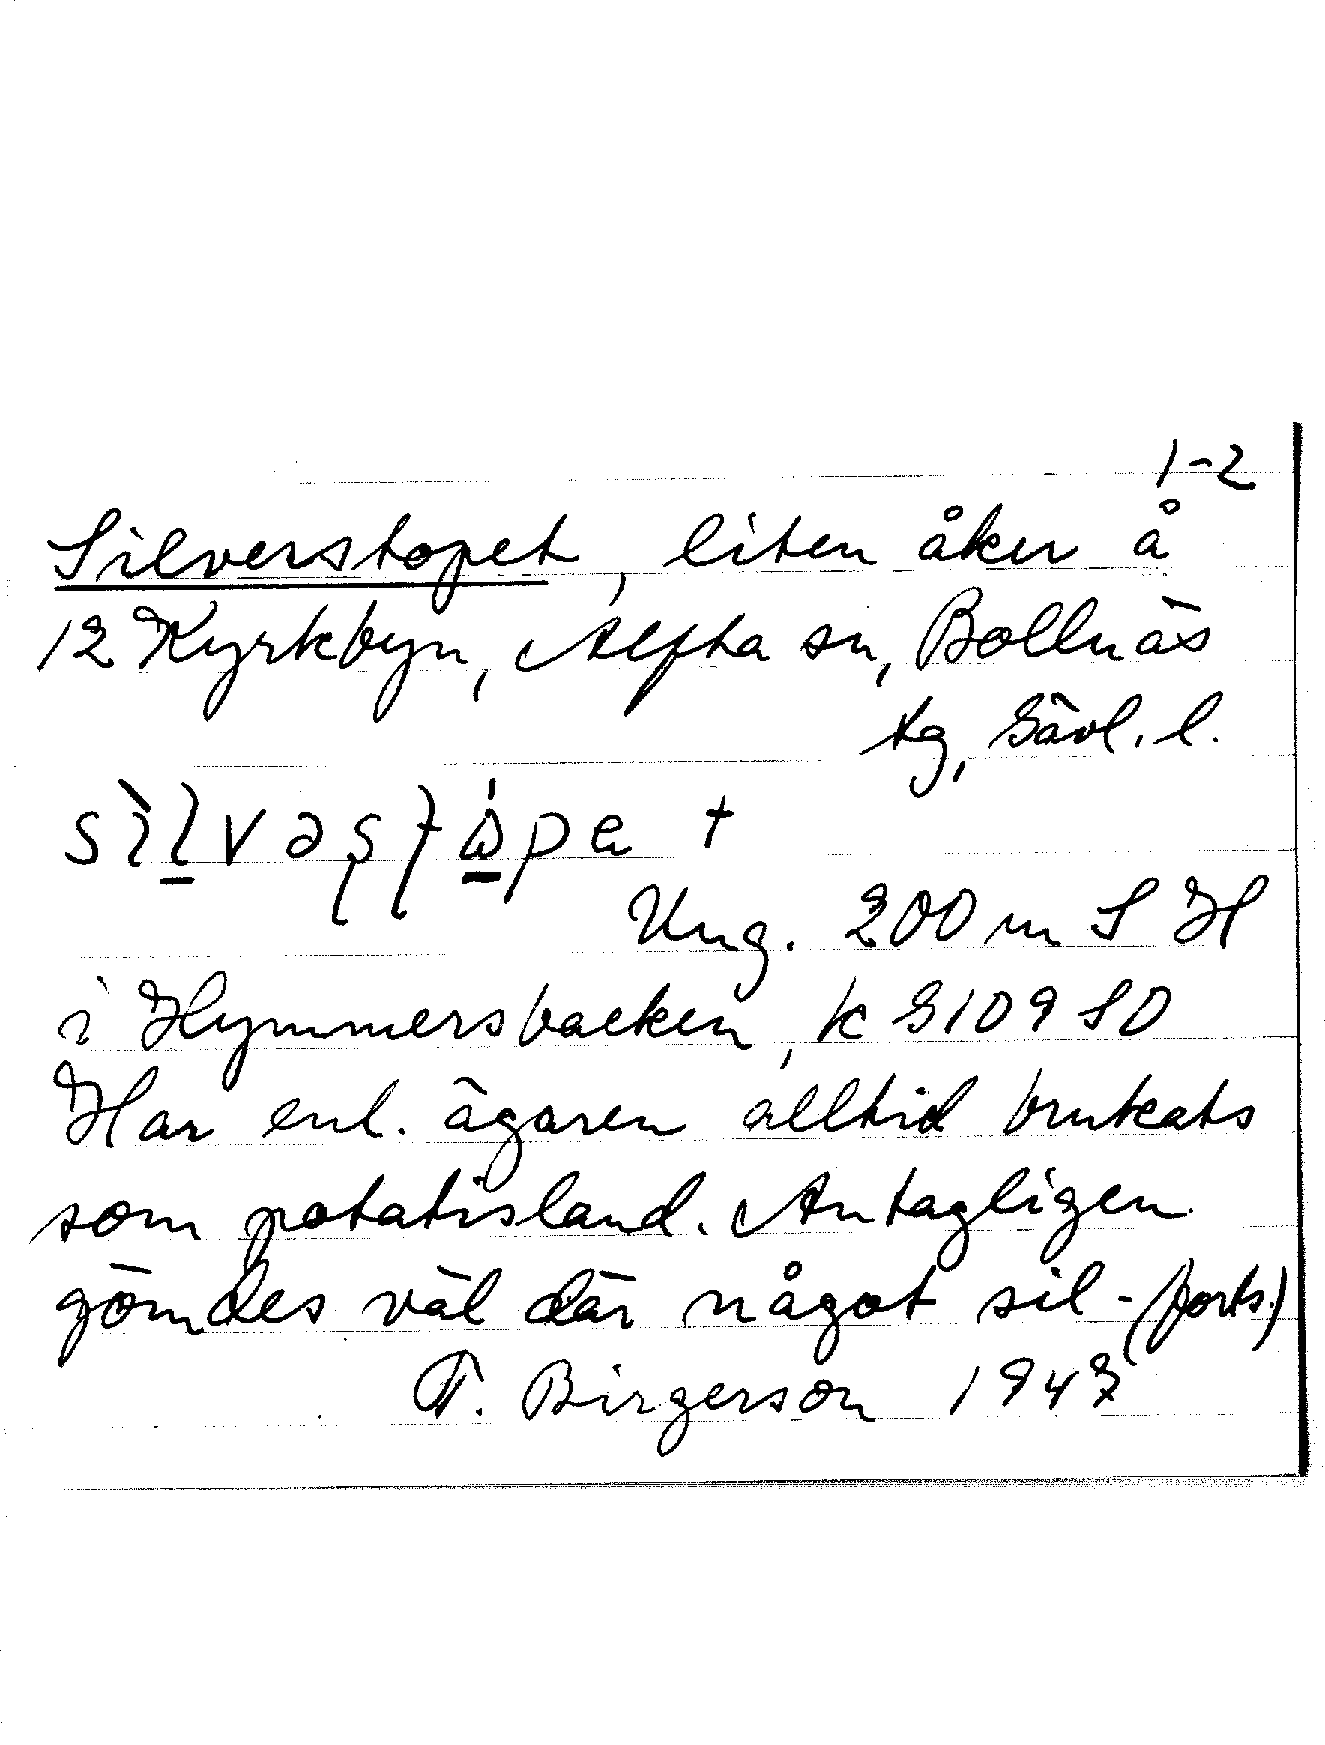 1-2
Silverstopet, liten åker å
12 Kyrkbyn, Alfta sn, Bollnäs
tg, Gävl. l.
Ung. 200 m S H
i Hymmersbacken, k G109 SO
Har enl. ägaren alltid brukats
som potatisland. Antagligen
gömdes väl där något sil- (forts.)
T. Birgerson 1947